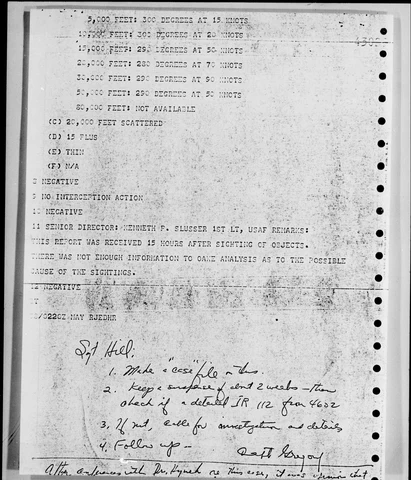 5,000 FEET: 300 DEGREES AT 15 KNOTS
10,000 FEET: 300 DEGREES AT 20 KNOTS
15,000 FEET: 290 DEGREES AT 50 KNOTS
20,000 FEET: 280 DEGREES AT 70 KNOTS
30,000 FEET: 290 DEGREES AT 90 KNOTS
50,000 FEET: 290 DEGREES AT 50 KNOTS
80,000 FEET: NOT AVAILABLE
(C) 20,000 FEET SCATTERED
(D) 15 PLUS
(E) THIN
(F) N/A
NEGATIVE
9 NO INTERCEPTION ACTION
10 NEGATIVE
11 SENIOR DIRECTOR: KENNETH P. SLUSSER 1ST LT, USAF REMARKS:
THIS REPORT WAS RECEIVED 15 HOURS AFTER SIGHTING OF OBJECTS.
THERE WAS NOT ENOUGH INFORMATION TO OAKE ANALYSIS AS TO THE POSSIBLE
CAUSE OF THE SIGHTINGS.
12 NEGATIVE
BT
/0220Z MAY RJEDHR
Sgt Hill:
1. Make a "case" file on this.
2. Keep a suspense of abt 2 weeks - then
check if a detailed IR 112 from 4602
3. If not, call for investigation and details
4. Follow up -
Capt Gregory
After conference with Dr. Hynek on this case, it was opinion that